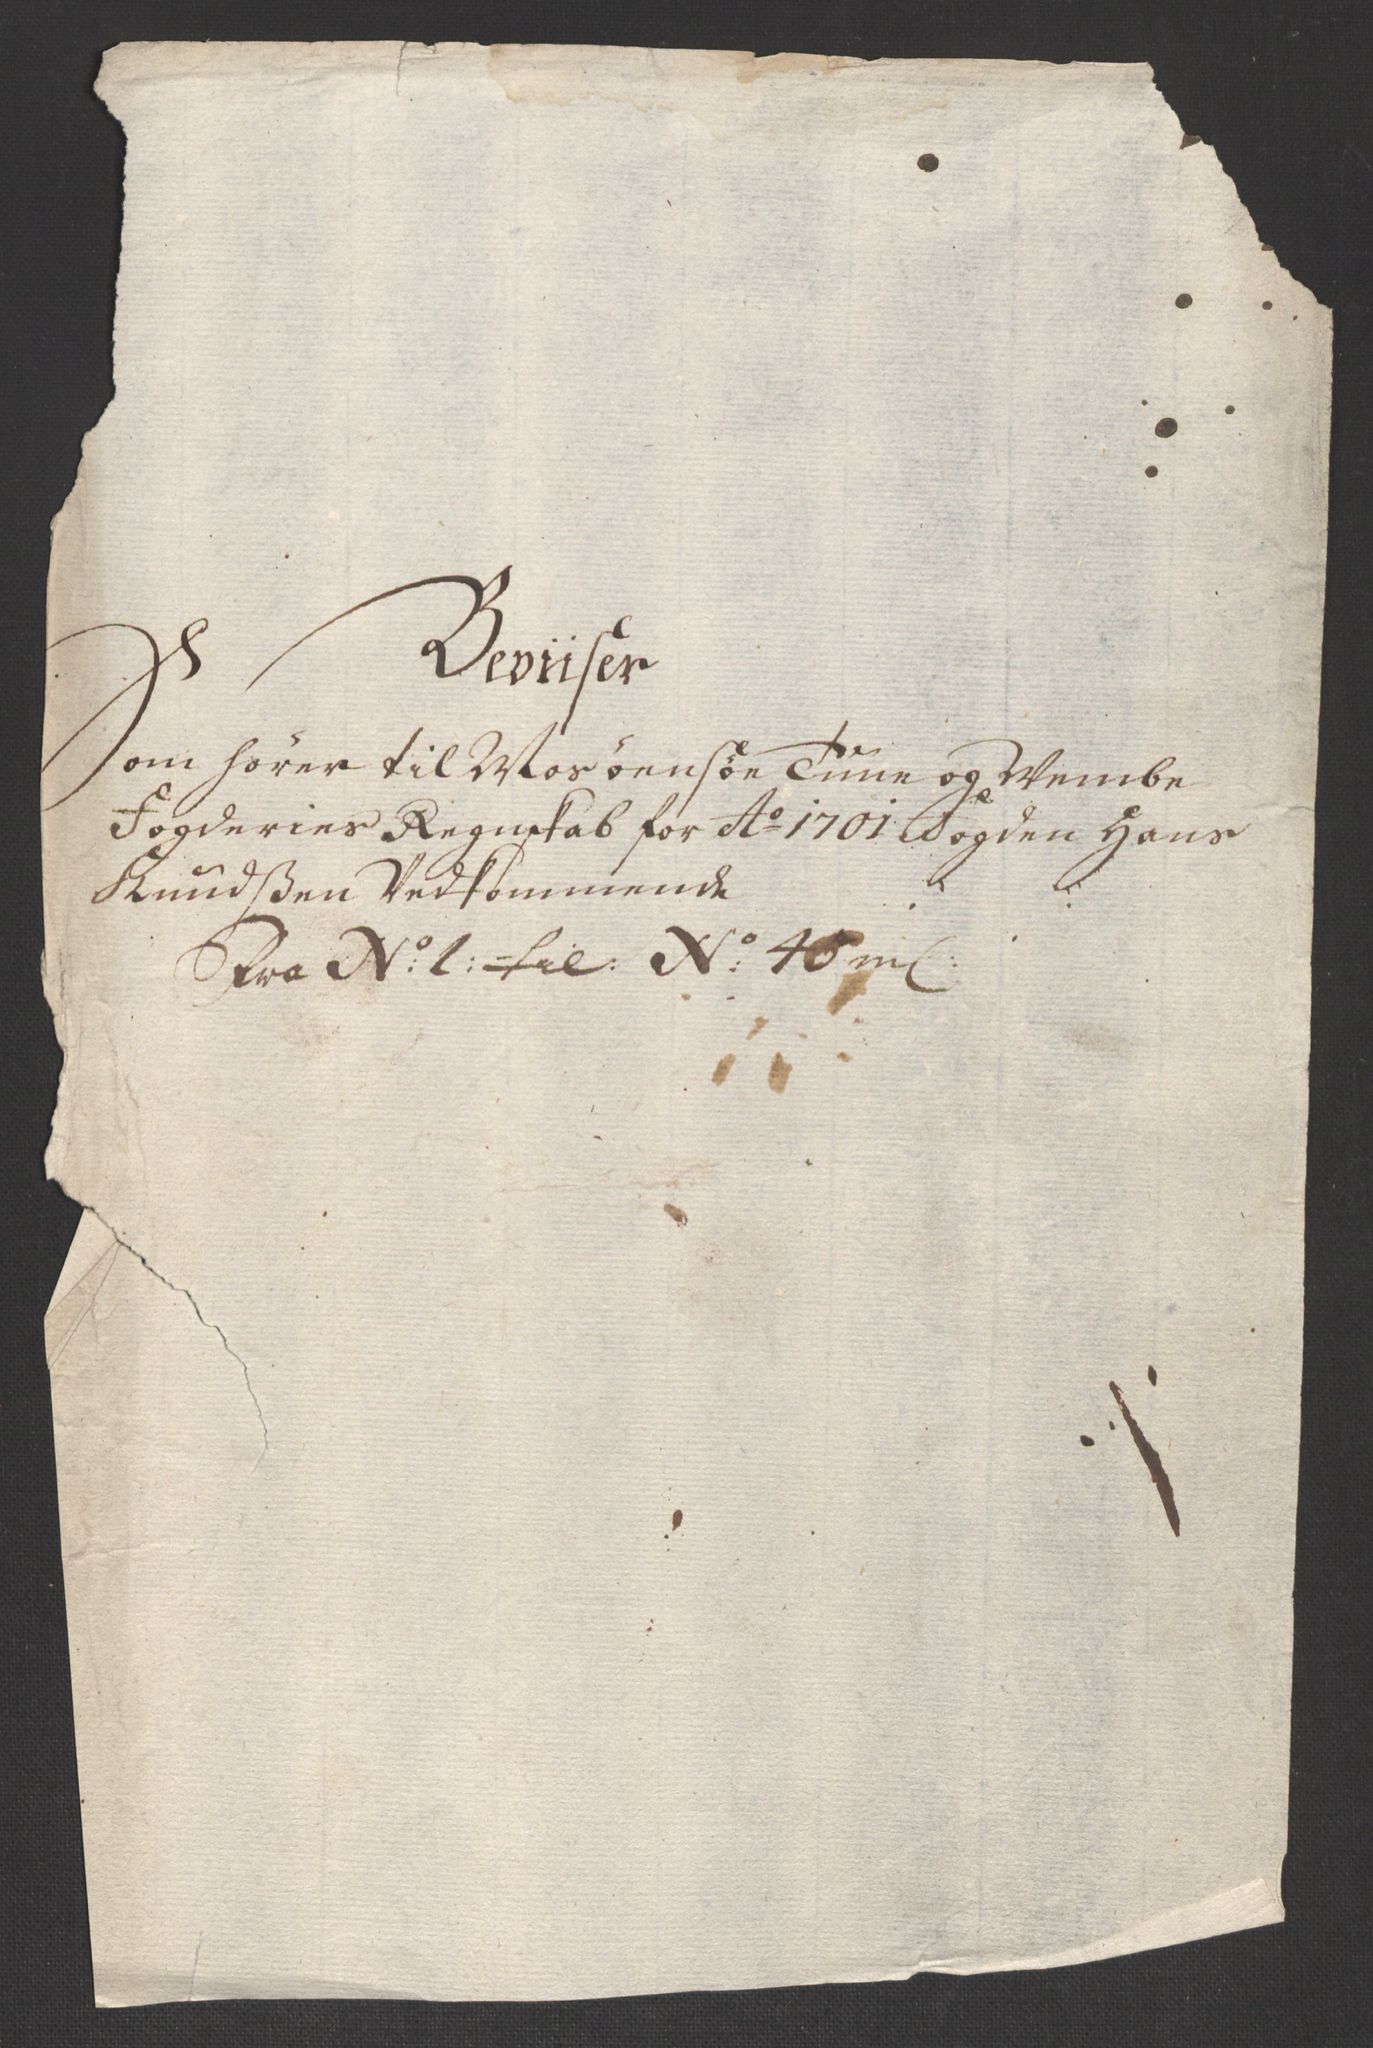 Beviiser
Som hörer til Mos öensöe Tune og Wembe
Fogderies Regnskab for Ao 1701 Fogden Hans
Knudsßen Vedkommende
Fra No: 1: til: No: 46